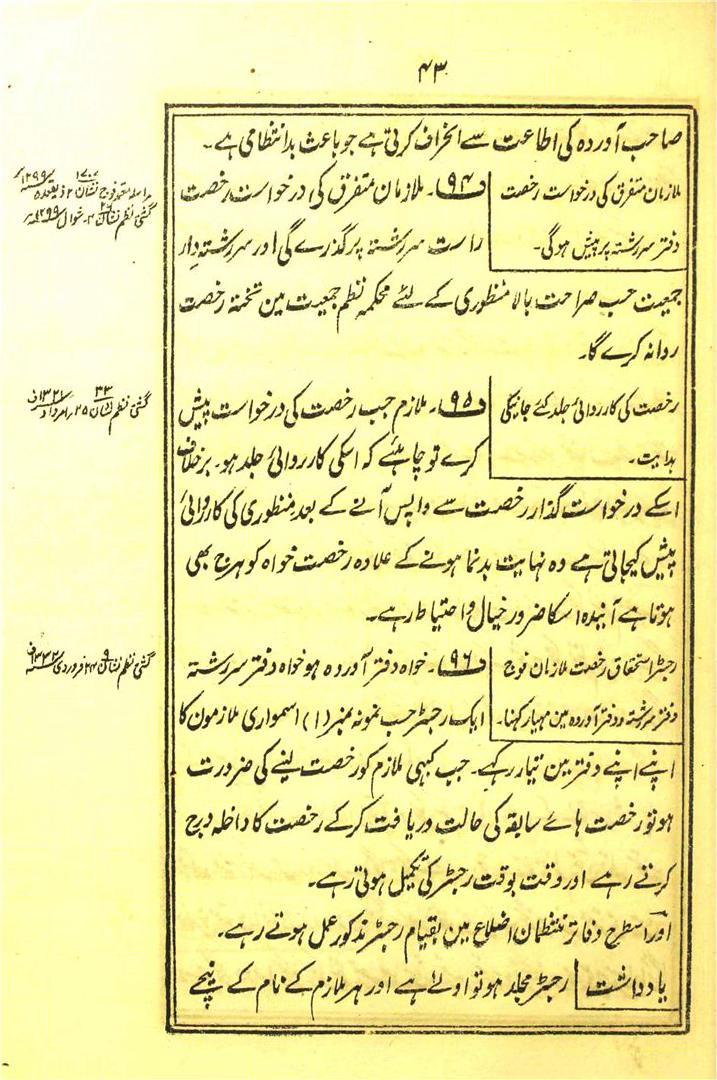 ۴۳
صاحب آوردہ کی اطاعت سے انحراف کرتی ہے جو باعث بدانتظامی ہے۔
ملازمان متفرق کی درخواست رخصت
دفتر سررشتہ پر پیش ہوگی۔
ف۹۴۔ ملازمان متفرق کی درخواست رخصت
راست سررشتہ پر گذرے گی اور سررشتہ دار
جمعیت حسب صراحت بالا منظوری کے لئے محکمہ نظم جمعیت مین تختہ رخصت
روانہ کرے گا۔
رخصت کی کارروائی جلد کئے جانیکی
ہدایت۔
ف۹۵۔ ملازم جب رخصت کی درخواست پیش
کرے تو چاہئے کہ اسکی کارروائی جلد ہو۔ برخلاف
اسکے درخواست گذار رخصت سے واپس آنے کے بعد منظوری کی کاروائی
پیش کیجاتی ہے وہ نہایت بدنما ہونے کے علادہ رخصت خواہ کو ہرج بھی
ہوتا ہے آیندہ اسکا ضرور خیال و احتیاط رہے۔
گشتی نظم نشان ۳۳ ۲۵؍امرداد ۱۳۲۷ف
رجٹر استحقاق رخصت ملازمان فوج
دفتر سرشتہ و دفتر آوردہ مین مہیار کہنا۔
ف۹۶۔ خواہ دفتر آوردہ ہو خواہ دفتر سررشتہ
ایک رجٹر حسب نمونہ نمبر (۱) اسمواری ملازمون کا
گشتی نظم نشان ۹ ۲۴ فروردی ۱۳۳۲ف
اپنے اپنے دفتر بین تیار رکہے۔ جب کبھی ملازم کو رخصت لینے کی ضرورت
ہو تو رخصت ہائے سابقہ کی حالت دریافت کرکے رخصت کا داخلہ درج
کرتے رہے اور وقت بوقت رجٹر کی تکمیل ہوتی رہے۔
اور اسطرح دفاتر منتظمان اضلاع مین بقیام رجٹر مذکور عمل ہوتے رہے۔
یادداشت
رجٹر مجلد ہو تو اولےٰ ہے اور ہر ملازم کے نام کے نیچے